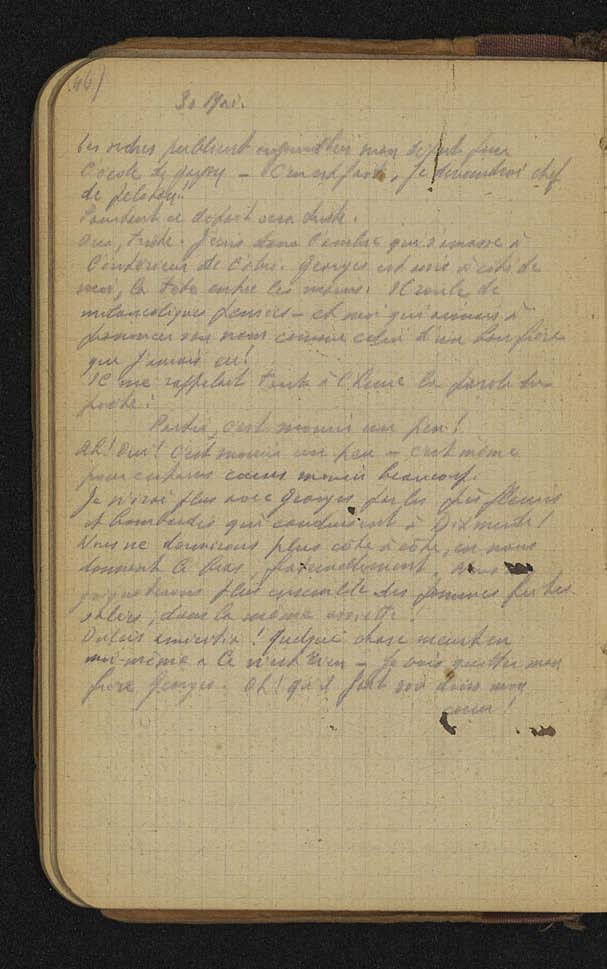 46)
30 Mai.
Les ordres publient aujourd'hui mon départ pour
l'école de Gayon - je deviendrai chef
de peloton.
Pourtant ce départ sera triste.
Oui, triste. Je suis dans l'ombre qui s'amasse à
l'intérieur de l'abri. Georges est assis à côté de
moi, la tête entre les mains. Il roule de
mélancoliques pensées - et moi qui aimais à
prononcer son nom comme celui d'un bon frère
que j'aurais eu!
Il me rappelait tout à l'heure la parole du
poète:
Partir, c'est mourir un peu!
Ah! Oui! C'est mourir un peu - c'est même
pour certains cœurs mourir beaucoup.
Je n'irai plus avec Georges par les prés fleuris
et bombardés qui conduisent à Dixmude!
Nous ne dormirons plus côte à côte, en nous
donnant le bras, fraternellement. Nous
plus ensemble des pommes
, dans la même assiette!
amicitia! Quelque chose meurt en
moi-même - Ce n'est rien - Je vais quitter mon
frère Georges. Oh! qu'il fait noir dans mon
cœur!